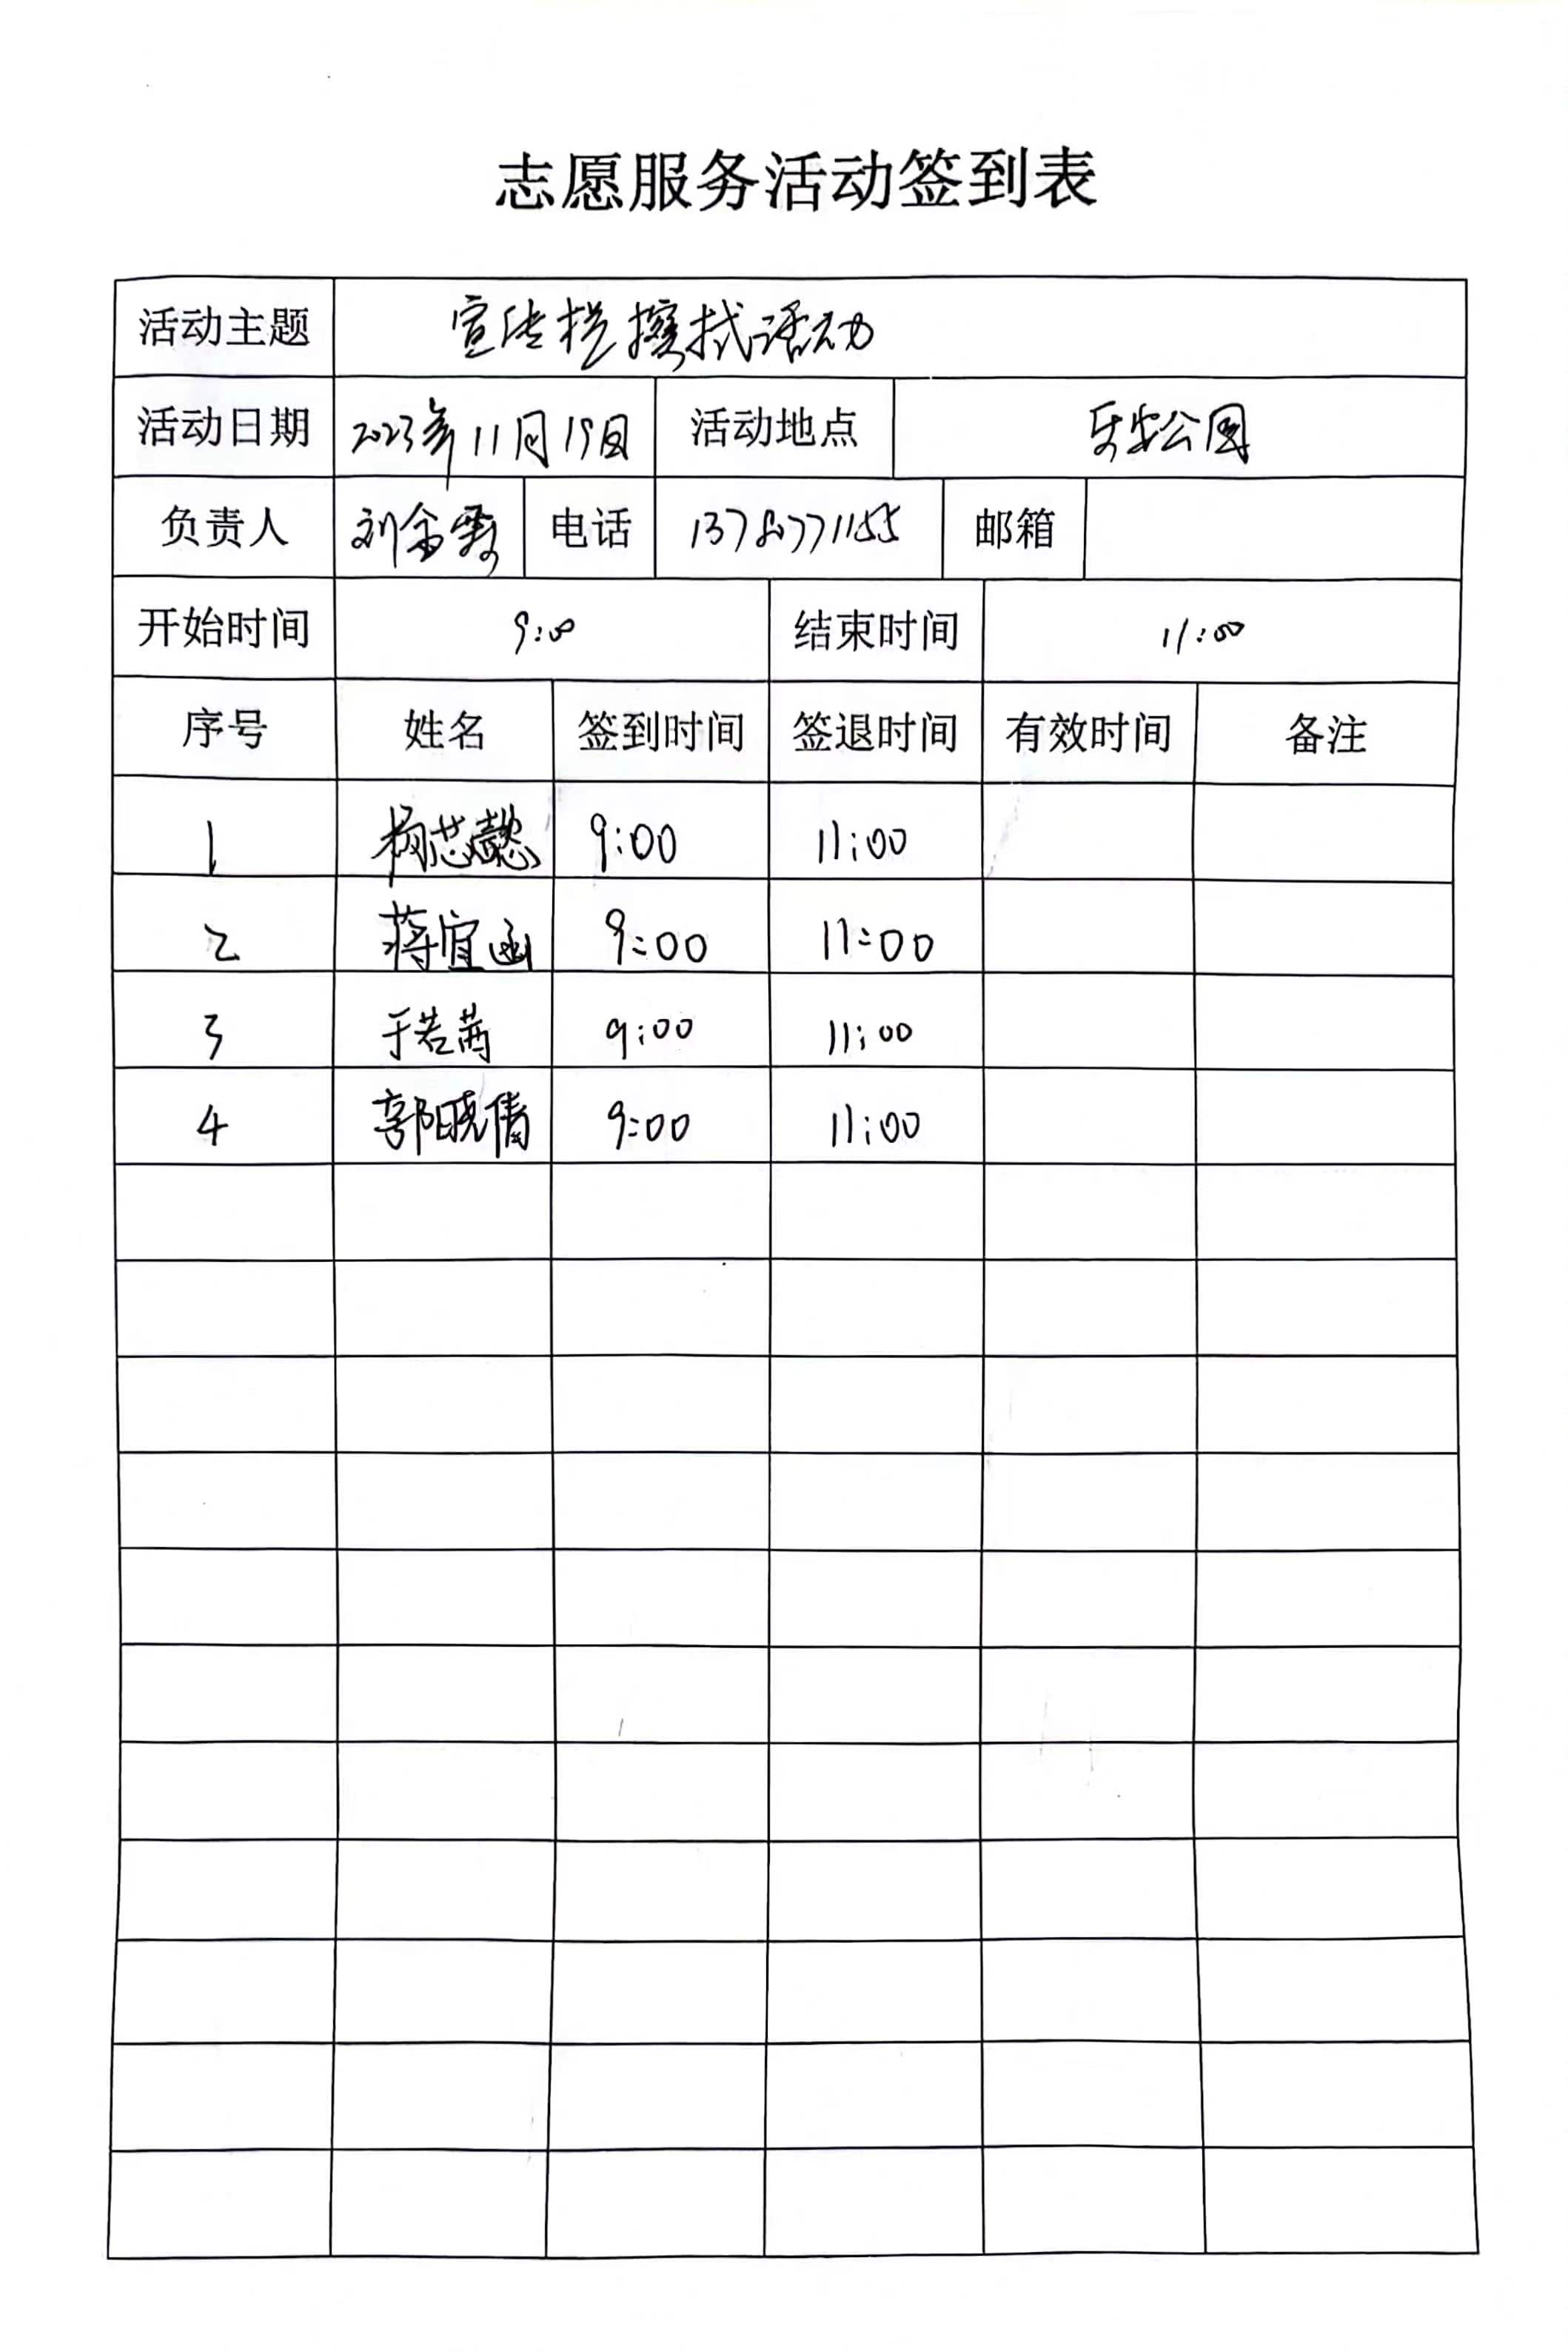 志愿服务活动签到表
活动主题 宣传栏擦拭活动
活动日期 2023年11月19日 活动地点 乐安公园
负责人 刘金霞 电话 13780771155 邮箱
开始时间 9:00 结束时间 11:00
序号 姓名 签到时间 签退时间 有效时间 备注
1 杨芯懿 9:00 11:00
2 蒋宜函 9:00 11:00
3 于若茜 9:00 11:00
4 郭晓倩 9:00 11:00